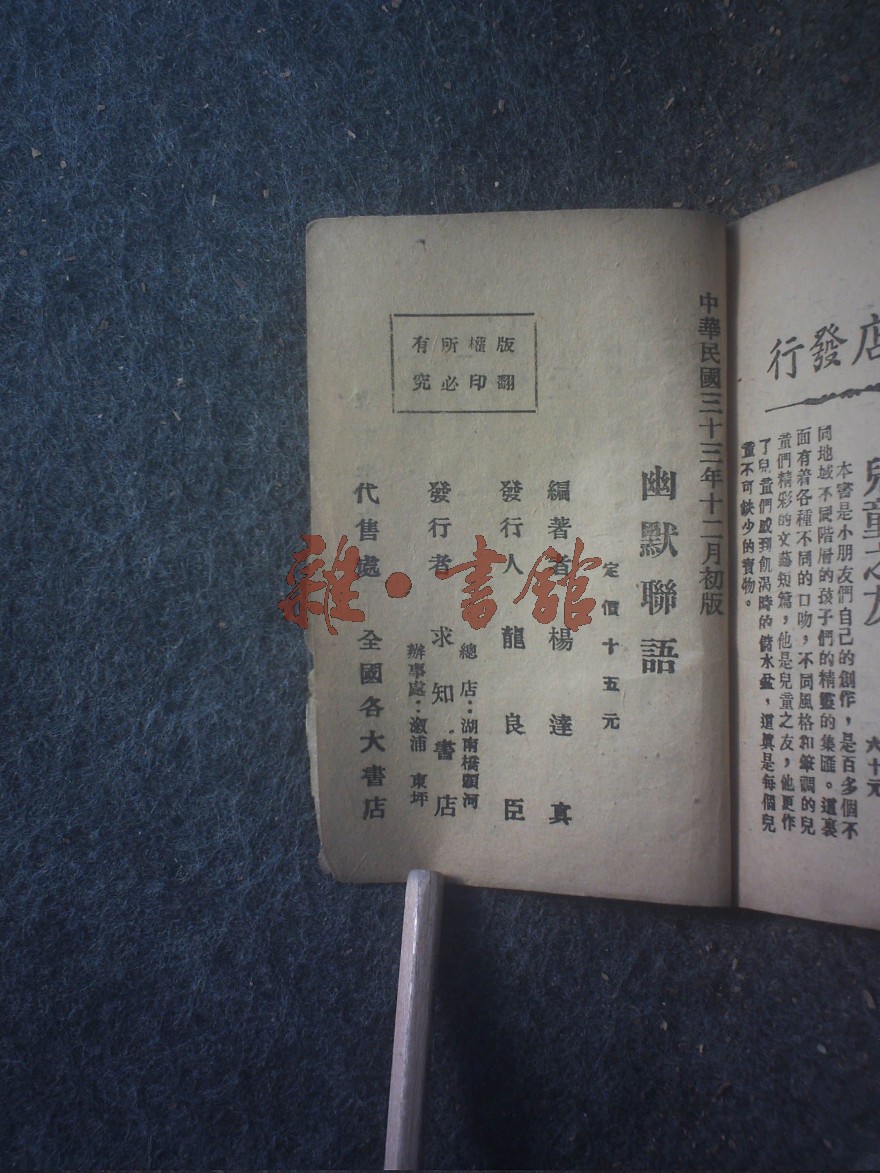 店發行
兒童之友
六十元
本書是小朋友們自己的創作，是百多個不
同地域不同階層的孩子們的精靈的集匯。這裏
面有着各種不同的口吻，不同風格和筆調的兒
童們精彩的文藝短篇，他是兒童之友，他更作
了兒童們感到飢渴時的儲水盆，這眞是每個兒
童不可缺少的寶物。
中華民國三十三年十二月初版
幽默聯語
定價十五元
編著者 楊達真
發行人 龍良臣
發行者 求知書店
總店：湖南橋頭河
辦事處：溆浦 東坪
代售處 全國各大書店
版權所有
翻印必究
雜·書館